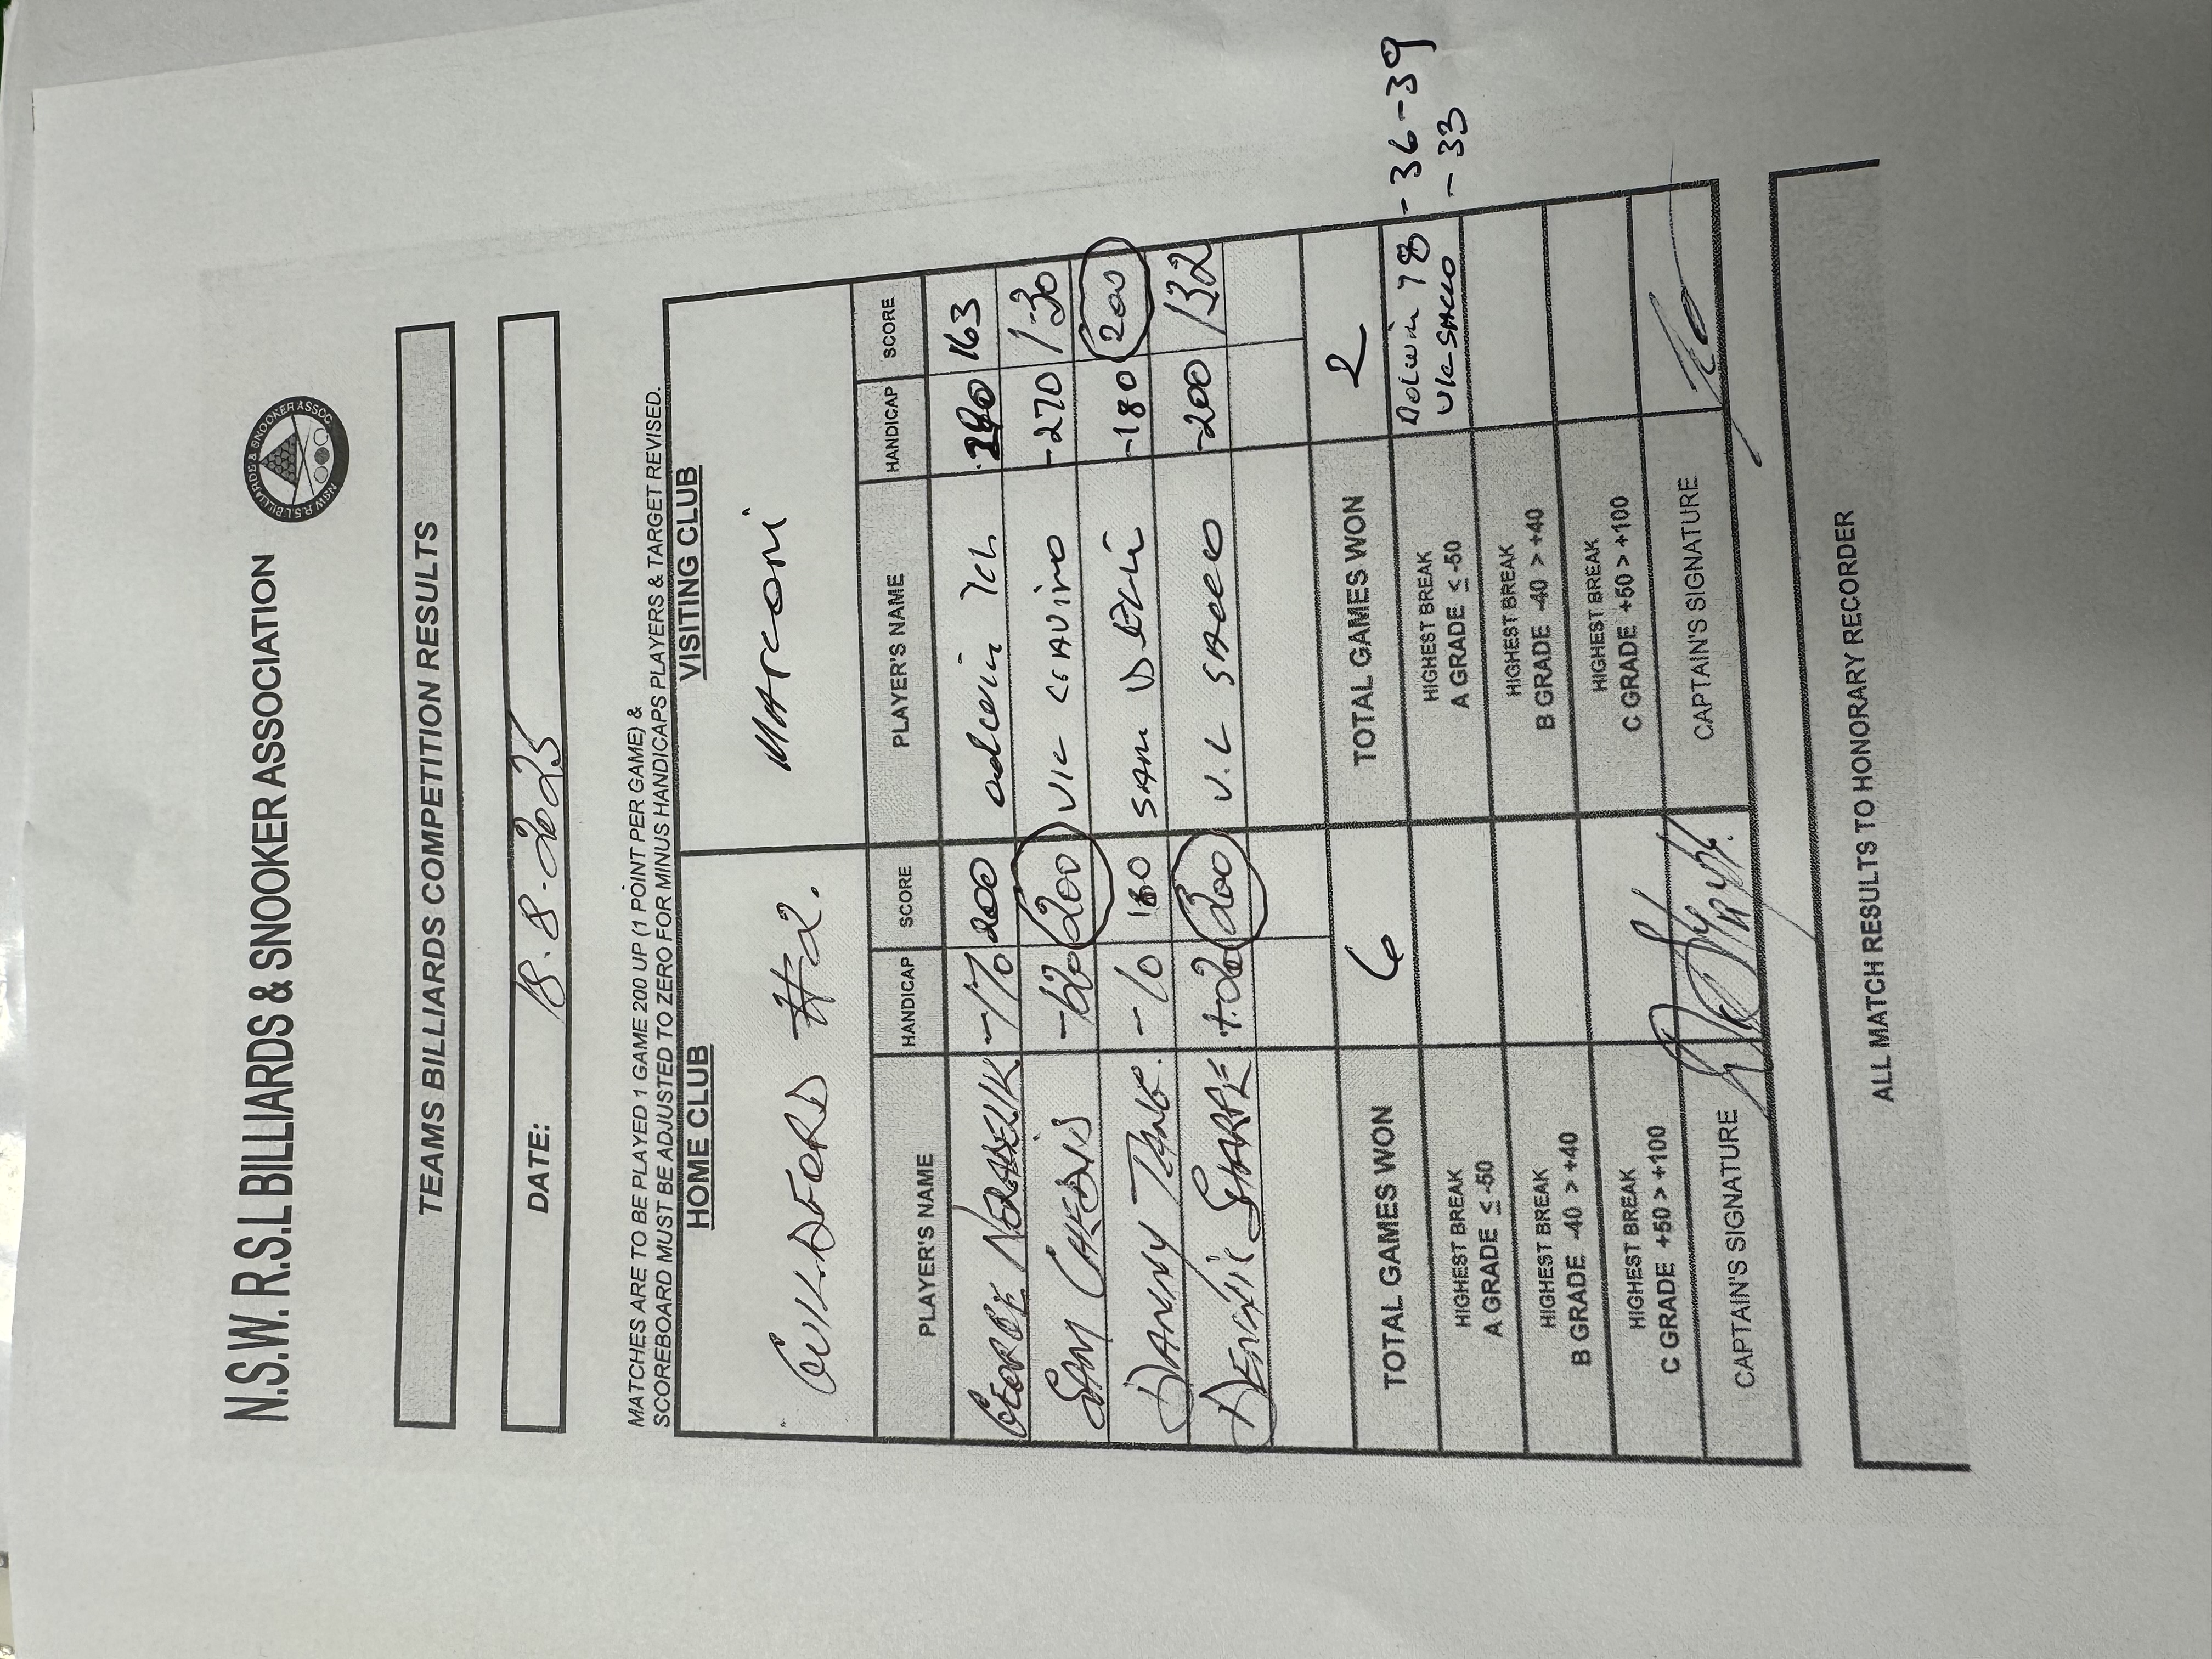 N.S.W. R.S.L BILLIARDS & SNOOKER ASSOCIATION
NSW R.S.L BILLIARDS & SNOOKER ASSOC
TEAMS BILLIARDS COMPETITION RESULTS
DATE: 18-8-2025
MATCHES ARE TO BE PLAYED 1 GAME 200 UP (1 POINT PER GAME) &
SCOREBOARD MUST BE ADJUSTED TO ZERO FOR MINUS HANDICAPS PLAYERS & TARGET REVISED.
HOME CLUB VISITING CLUB
GUILDFORD #2. MARCONI
PLAYER'S NAME HANDICAP SCORE PLAYER'S NAME HANDICAP SCORE
GEORGE -170 200 163
SAM -60 200 VIC -270 130
DANNY -10 180 SAM -180 200
DENNIS SHARPE +20 200 V.L SACCO -200 132
TOTAL GAMES WON 6 TOTAL GAMES WON 2
HIGHEST BREAK
A GRADE ≤ -50
HIGHEST BREAK
A GRADE ≤ -50
78 - 36 - 39
SACCO - 33
HIGHEST BREAK
B GRADE -40 > +40
HIGHEST BREAK
B GRADE -40 > +40
HIGHEST BREAK
C GRADE +50 > +100
HIGHEST BREAK
C GRADE +50 > +100
CAPTAIN'S SIGNATURE CAPTAIN'S SIGNATURE
ALL MATCH RESULTS TO HONORARY RECORDER